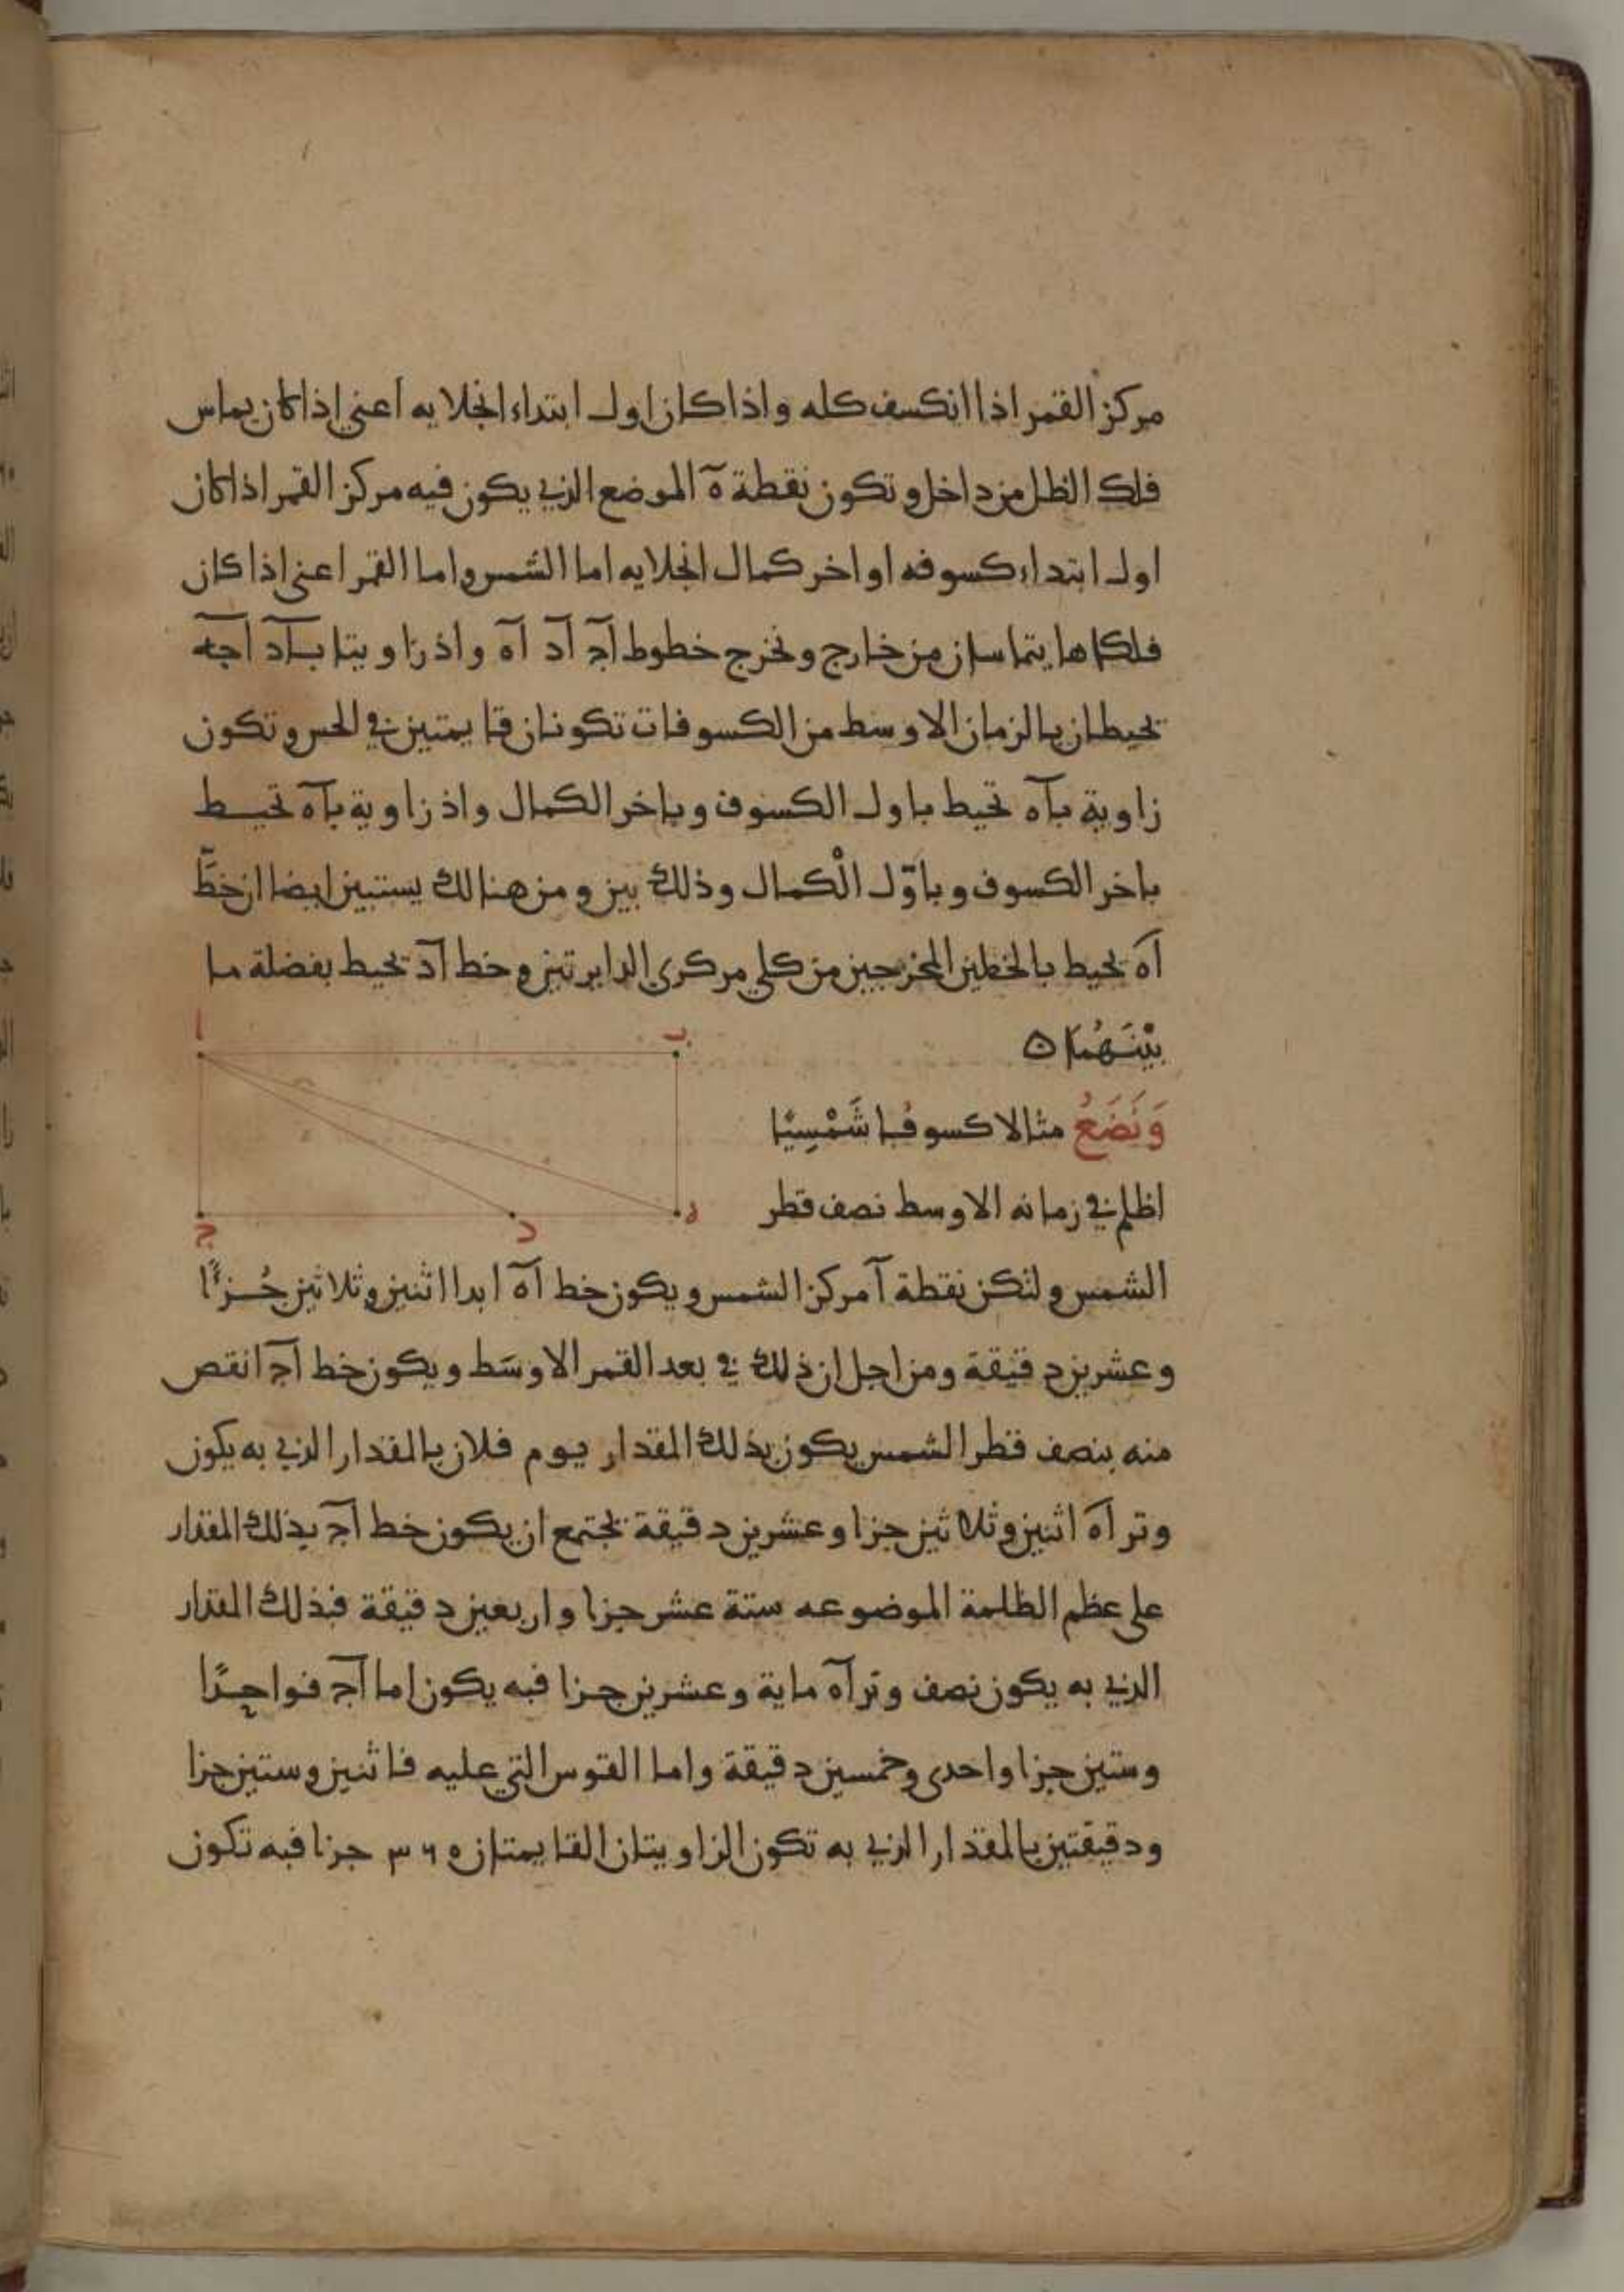 مركز القمر اذا انكسف كله واذا كان اول ابتداء انجلايه اعني اذا كان يماس
فلك الظل من داخل وتكون نقطة ه الموضع الذي يكون فيه مركز القمر اذا كان
اول ابتداء كسوفه او اخر كمال انجلايه اما الشمس واما القمر اعني اذا كان
فلكاهما يتماسان من خارج ونخرج خطوط اج اد اه واذ زاويتا باد اجه
تحيطان بالزمان الاوسط من الكسوفات تكونان قايمتين في الحس وتكون
زاوية باه تحيط باول الكسوف وباخر الكمال واذ زاوية باه تحيط
باخر الكسوف وباوّل الْكمال وذلك بين ومن هنالك يستبين ايضا ان خطَّ
اه يحيط بالخطين المخرجين من كلي مركزي الدايرتين وخط اد يحيط بفضلة ما
بيْنَهُمَا ه
ا
ب
وَنَضَعُ مثالا كسوفُا شَمْسِيًا
اظلم في زمانه الاوسط نصف قطر
ج
د
ه
الشمس ولتكن نقطة ا مركز الشمس ويكون خط اه ابدا اثنين وثلاثين جُزءًا
وعشرين دقيقة ومن اجل ان ذلك في بعد القمر الاوسَط ويكون خط اج انقص
منه بنصف قطر الشمس يكون بذلك المقدار يوم فلان بالمقدار الذي به يكون
وتر اه اثنين وثلاثين جزا وعشرين دقيقة يجتمع ان يكون خط اج بذلك المقدار
على عظم الظلمة الموضوعه ستة عشر جزا واربعين دقيقة فبذلك المقدار
الذي به يكون نصف وتر اه ماية وعشرين جزا فبه يكون اما اج فواحِدًا
وستين جزا واحدى وخمسين دقيقة واما القوس التي عليه فاثنين وستين جزا
ودقيقتين بالمقدار الذي به تكون الزاويتان القايمتان ٣٦٥ جزا فبه تكون